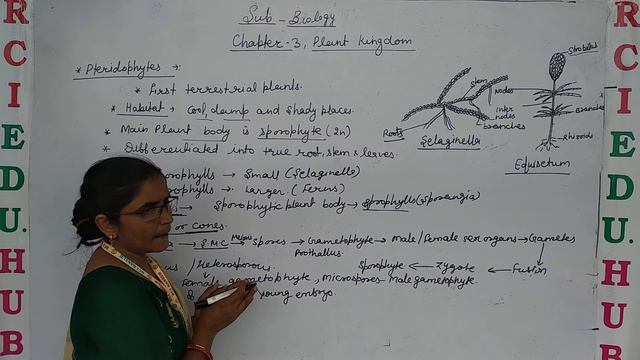 Sub - Biology
Chapter-3, Plant Kingdom
* Pteridophytes :-
* First terrestrial plants.
* Habitat → Cool, damp and shady places.
* Main Plant body is sporophyte (2n)
* Differentiated into true root, stem & leaves.
rophylls → Small (Selaginella)
rophylls → Larger. (Ferns)
→ Sporophytic plant body → Sporophylls (Sporangia)
or cones.
→ SMC Meiosis → Spores → Gametophyte → Male/Female sex organs → Gametes
Prothallus.
Sporophyte ← Zygote ← Fusion
us / Heterosporous.
Female gametophyte, Microspores Male gametophyte.
young embryo.
Stem
Nodes
Inter nodes
branches
Roots
Selaginella
Strobilus
Branches
Rhizoids
Equisetum
RCI EDU. HUB
RCI EDU. HUB